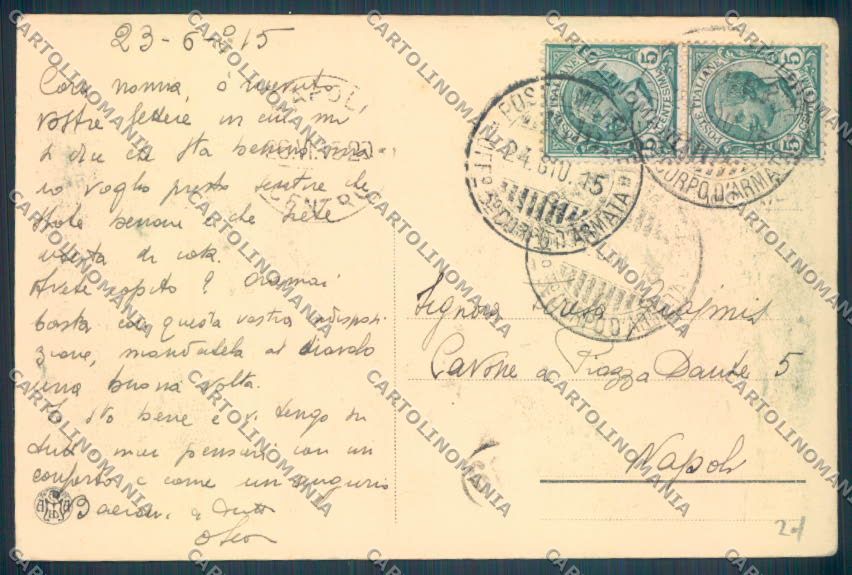 23-6-915
Cara nonna, ò ricevuto
vostre lettere in cui mi
si dice che sta benino ma
io voglio presto sentire che
state benone e che siete
di
Avete capito? Oramai
basta con questa vostra indisposi-
zione, mandatela al diavolo
una buona volta.
Io sto bene e vi tengo in
tutti miei pensieri con un
conforto e come un augurio
Bacioni a tutti
POSTE ITALIANE
CENTESIMI
5
POSTE ITALIANE
CENTESIMI
5
POSTA MILITARE
24. GIU. 15
CORPO D'ARMATA
CORPO D'ARMATA
CORPO D'ARMATA
NAPOLI
CENTRO
Signora
Cavone a Piazza Dante 5
Napoli
CARTOLINOMANIA